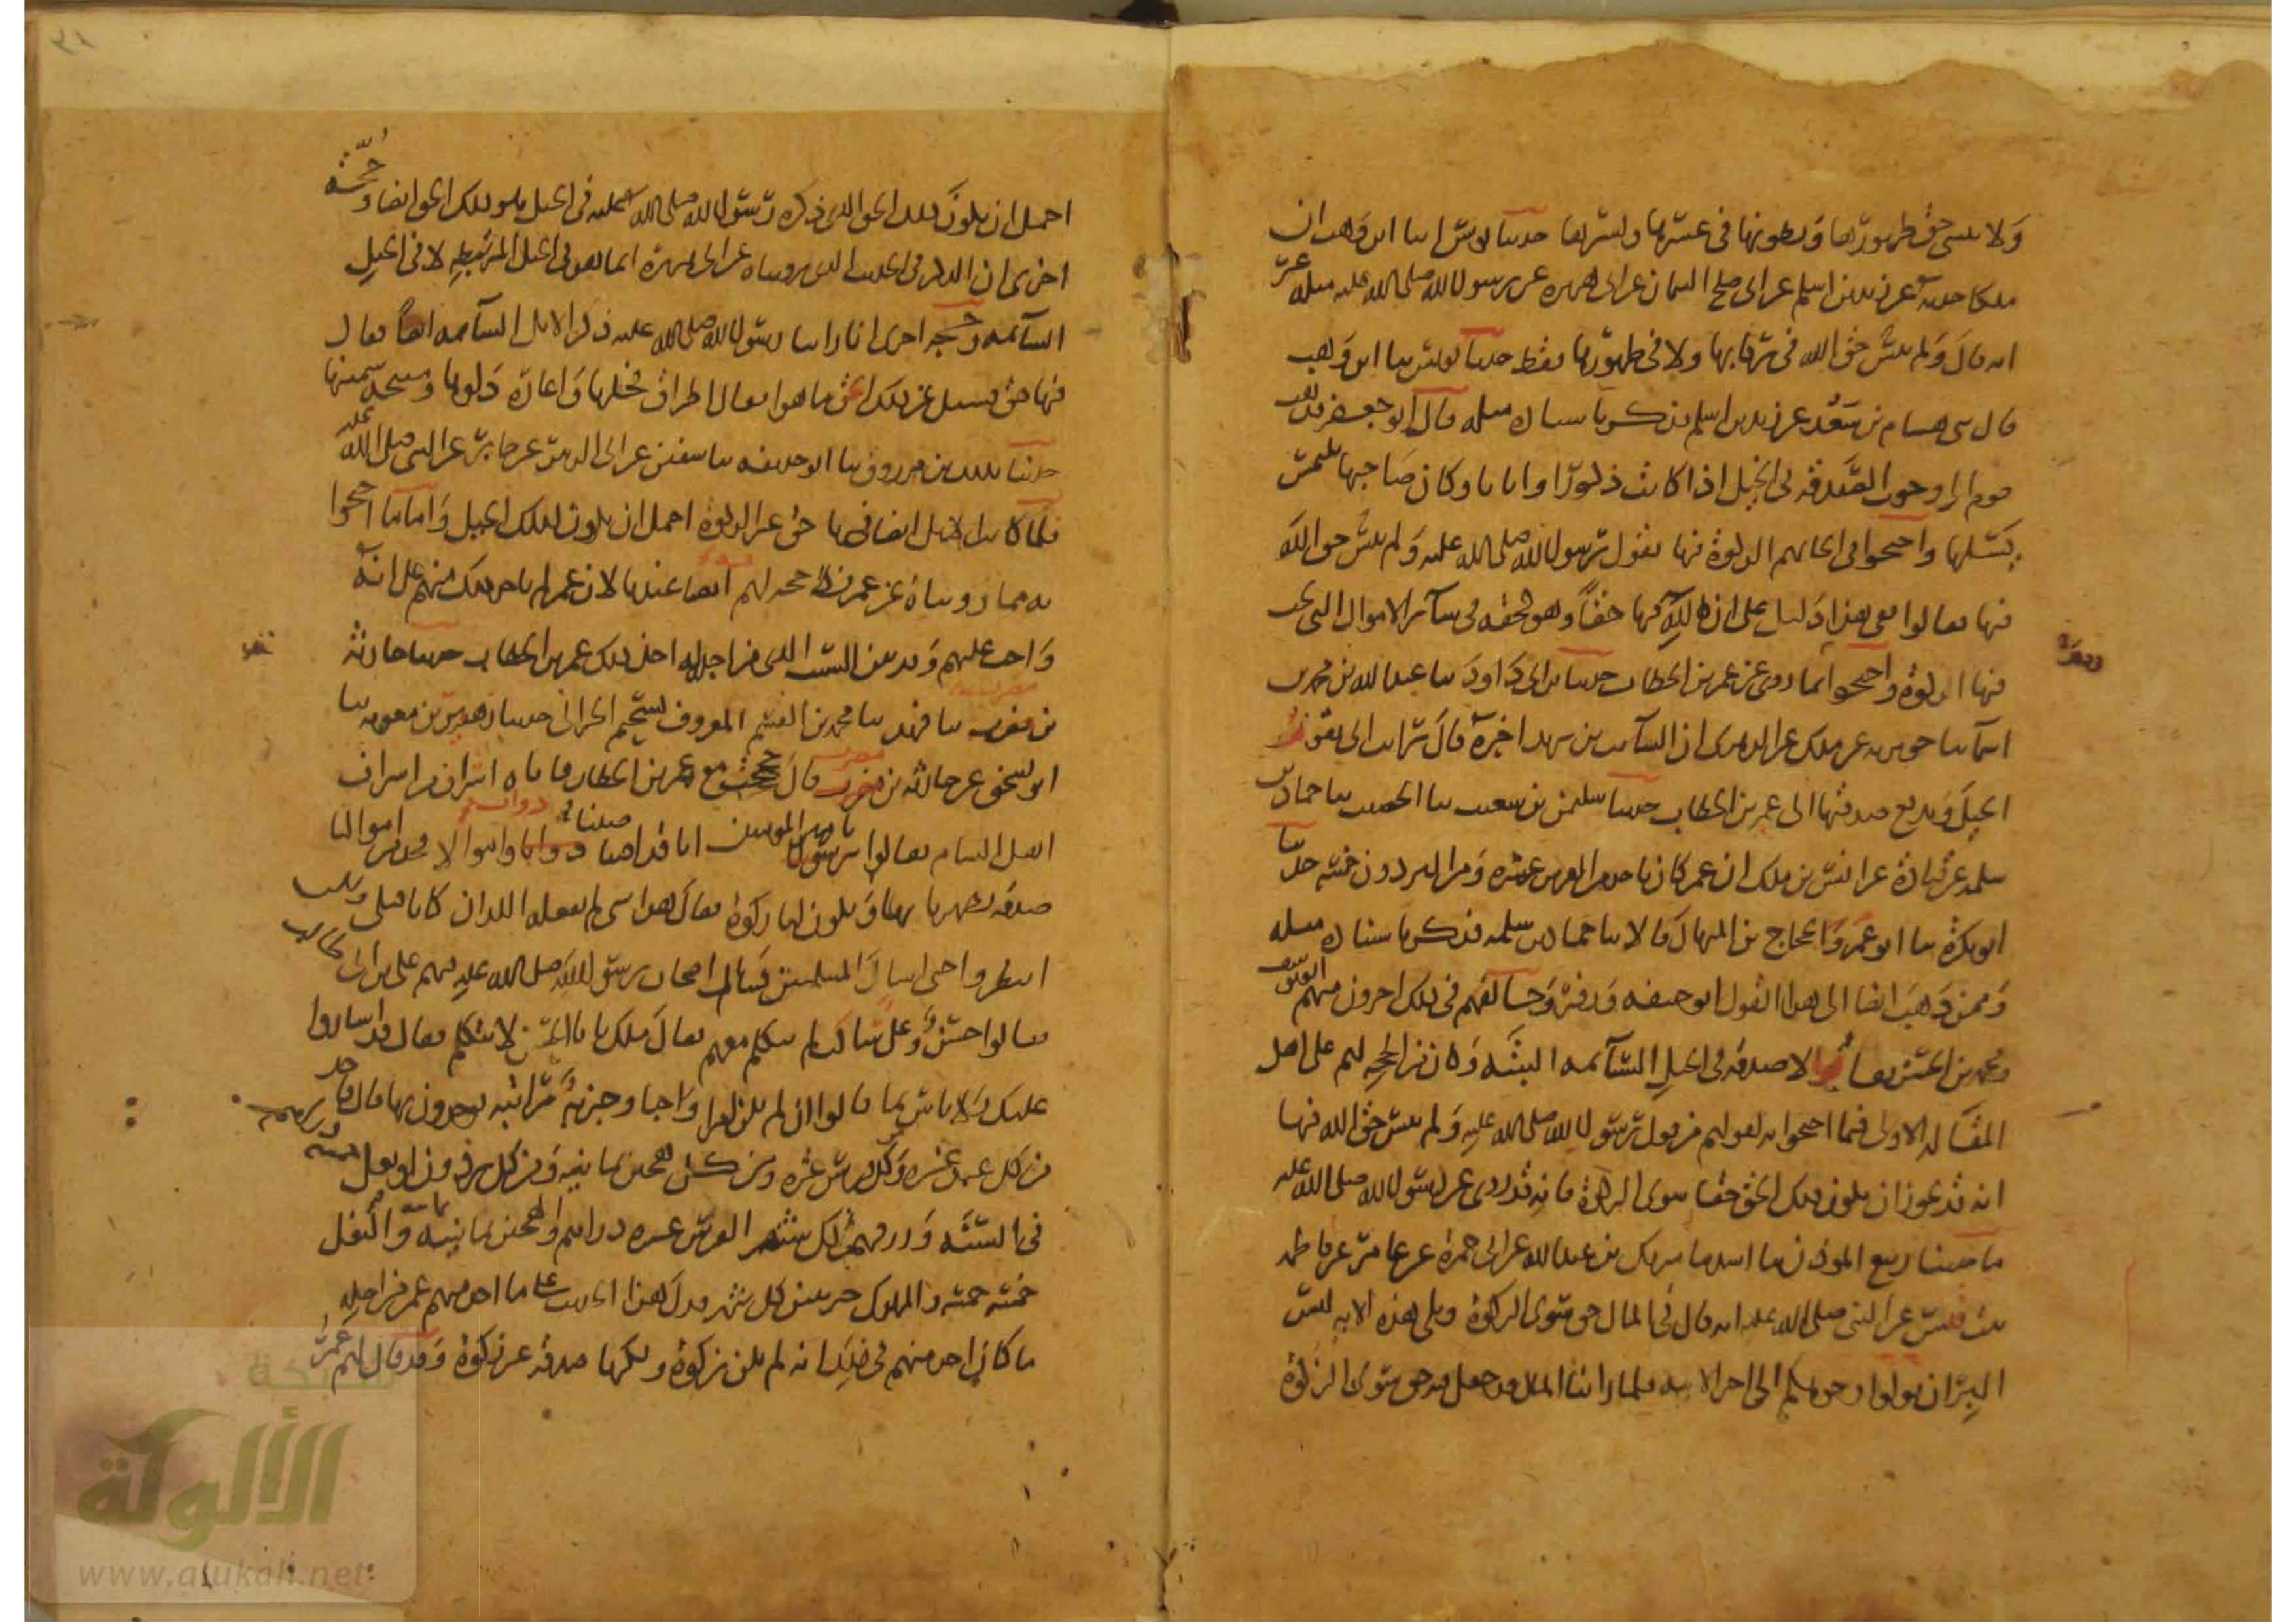 ولا ينسى حق ظهورها وبطونها في عسرها ويسرها حدثنا يونس انبا ابن وهب ان
ملكا حدثه عن زيد بن اسلم عن ابي صلح السمان عن ابي هريرة عن رسول الله صلى الله عليه مثله غير
انه قال ولم ينس حق الله في رقابها ولا في ظهورها فقط حدثنا يونس ثنا ابن وهب
قال ثنى هشام بن سعد عن زيد بن اسلم فذكر باسناده مثله قال ابو جعفر فذهب
قوم الى وجوب الصدقة في الخيل اذا كانت ذكورا واناثا وكان صاحبها يلتمس
نسلها واحتجوا في ايجابهم الزكوة فيها بقول رسول الله صلى الله عليه ولم ينس حق الله
فيها فقالوا ففي هذا دليل على ان لله فيها حقا وهو كحقه في سائر الاموال التي تجب
فيها الزكوة واحتجوا بما روي عن عمر بن الخطاب حدثنا ابن ابي داود ثنا عبد الله بن محمد بن
اسما ثنا جويرية عن ملك عن الزهري ان السائب بن يزيد اخبره قال رايت ابي يقوم
الخيل ويدفع صدقتها الى عمر بن الخطاب حدثنا سليمن بن شعيب ثنا الخصيب ثنا حماد بن
سلمة عن قتادة عن انس بن ملك ان عمر كان ياخذ من الفرس عشرة ومن البرذون خمسة حدثنا
ابو بكرة ثنا ابو عمر والحجاج بن المنهال قالا ثنا حماد بن سلمة فذكر باسناده مثله
وممن ذهب ايضا الى هذا القول ابو حنيفة وزفر وخالفهم في ذلك اخرون منهم ابو يوسف
ومحمد بن الحسن فقالوا لا صدقة في الخيل السائمة البتة وكان من الحجة لهم على اهل
المقالة الاولى فيما احتجوا به لقولهم من قول رسول الله صلى الله عليه ولم ينس حق الله فيها
انه قد يجوز ان يكون ذلك الحق حقا سوى الزكوة فانه قد روي عن رسول الله صلى الله عليه
ما حدثنا ربيع المؤذن ثنا اسد ثنا شريك بن عبد الله عن ابي حمزة عن عامر عن فاطمة
بنت قيس عن النبي صلى الله عليه انه قال في المال حق سوى الزكوة وتلى هذه الاية ليس
البر ان تولوا وجوهكم الى اخر الاية فلما راينا المال قد جعل فيه حق سوى الزكوة
احتمل ان يكون ذلك الحق الذي ذكره رسول الله صلى الله عليه في الخيل هو ذلك الحق ايضا وحجة
اخرى ان الزكوة في الحديث الذي رويناه عن ابي هريرة انما هو في الخيل المرتبطة لا في الخيل
السائمة وحجة اخرى انا راينا رسول الله صلى الله عليه ذكر الابل السائمة ايضا فقال
فيها حق فسئل عن ذلك الحق ما هو فقال اطراق فحلها واعارة دلوها ومنيحة سمينها
حدثنا بذلك بن مرزوق ثنا ابو حذيفة ثنا سفين عن ابي الزبير عن جابر عن النبي صلى الله عليه
فلما كانت الابل ايضا فيها حق غير الزكوة احتمل ان يكون كذلك الخيل واما ما احتجوا
به مما رويناه عن عمر فلا حجة لهم ايضا عندنا لان عمر لم ياخذ ذلك منهم على انه
واجب عليهم وقد بين السبب الذي من اجله اخذ ذلك عمر بن الخطاب حدثنا حارثة
بن مضرب ثنا فهد ثنا محمد بن القسم المعروف بسحيم الحراني حدثنا زهير بن معوية ثنا
ابو اسحق عن حارثة بن مضرب قال حججت مع عمر بن الخطاب فاتاه اشراف من اشراف
اهل الشام فقالوا يا امير المؤمنين انا قد اصبنا دوابا واموالا فخذ من اموالنا
صدقة تطهرنا بها وتكون لنا زكوة فقال هذا شي لم يفعله اللذان كانا قبلي ولكن
انتظروا حتى اسال المسلمين فسال اصحاب رسول الله صلى الله عليه فيهم علي بن ابي طالب
فقالوا حسن وعلي ساكت لم يتكلم معهم فقال ملك يابا الحسن لا تتكلم فقال قد اشاروا
عليك ولا باس بما قالوا ان لم يكن امرا واجبا وجزية راتبة يوخذون بها قال فاخذ
من كل عبد عشرة ومن كل فرس عشرة ومن كل هجين ثمانية ومن كل برذون او بغل خمسة
في السنة ورزقهم كل شهر الفرس عشرة دراهم والهجين ثمانية والبغل
خمسة خمسة والمملوك جريبين كل شهر فدل هذا الحديث على ما اخذ منهم عمر من اجله
ما كان اخذ منهم في ذلك انه لم يكن زكوة ولكنها صدقة غير زكوة وقد قال لهم عمر
شبكة
الألوكة
www.alukah.net